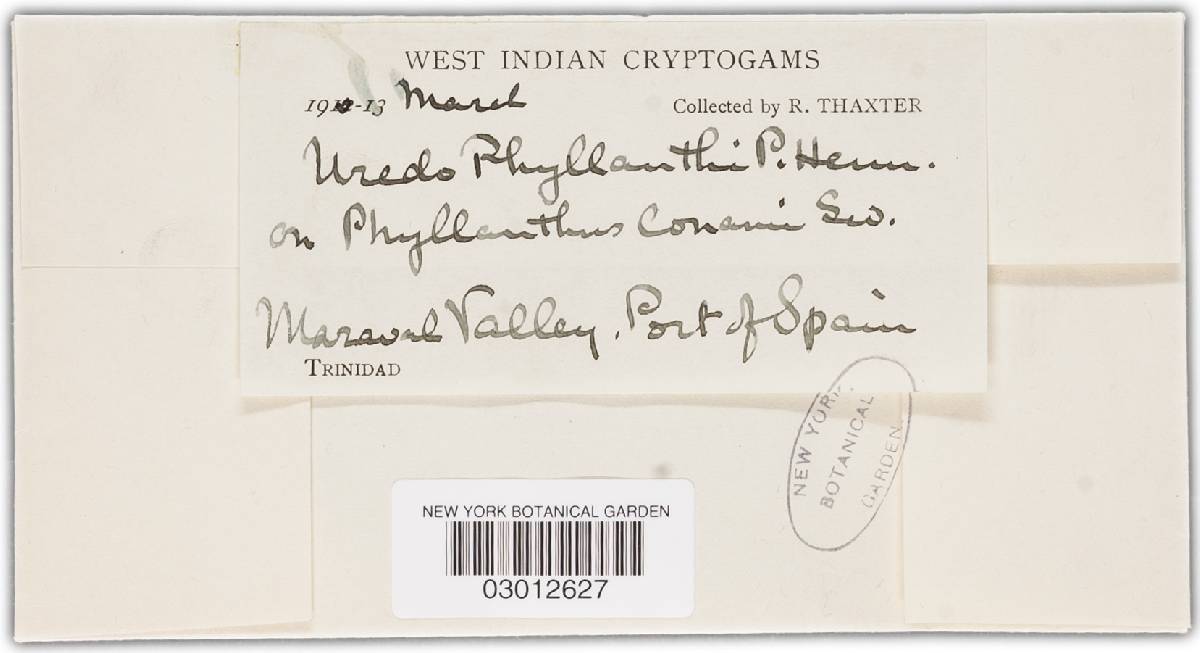 WEST INDIAN CRYPTOGAMS
191-13 March
Collected by R. THAXTER
Uredo Phyllanthi P. Henn.
on Phyllanthus Conami Sw.
Maraval Valley, Port of Spain
TRINIDAD
NEW YORK
BOTANICAL
GARDEN
NEW YORK BOTANICAL GARDEN
03012627